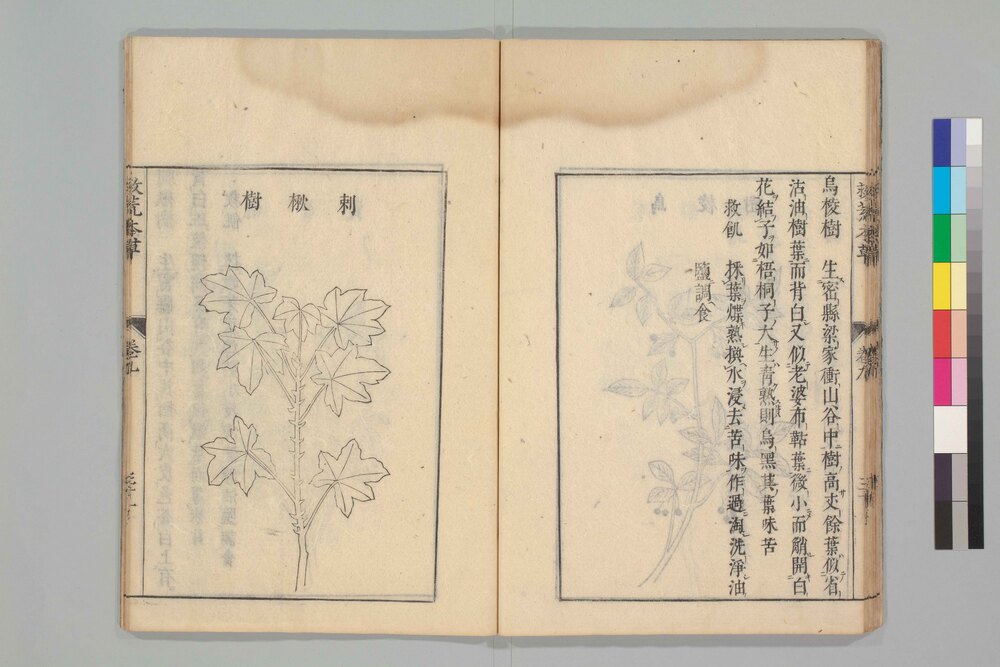 烏桵樹　生密縣梁家衝山谷中樹高丈餘葉似省
沽油樹葉而背白又似老婆布鞊葉微小而艄開白
花結子如梧桐子大生青熟則烏黑其葉味苦
救飢　採葉煠熟換水浸去苦味作過淘洗淨油
鹽調食
刺楸樹
救荒本草
卷九